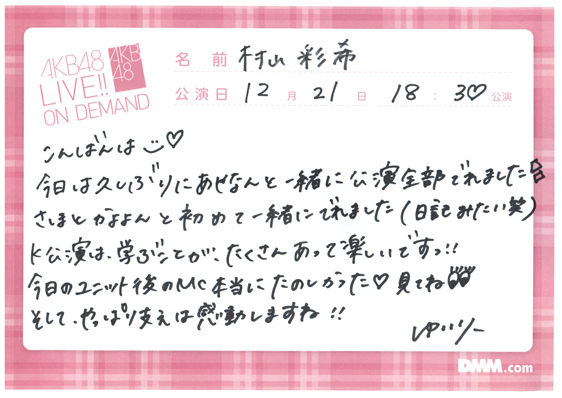 AKB48
LIVE!!
ON DEMAND
AKB
48
名 前 村山 彩希
公演日 12 月 21 日 18 : 30 公演
こんばんは
今日は久しぶりにあせなんと一緒に公演全部でれました
さしまとかなよんと初めて一緒にでれました(日記みたい笑)
K公演は、学ぶことが、たくさんあって楽しいですっ!!
今日のユニット後のMC本当にたのしかった♡見てね
そして、やっぱり支えは感動しますね!!
ゆいりー
DMM.com